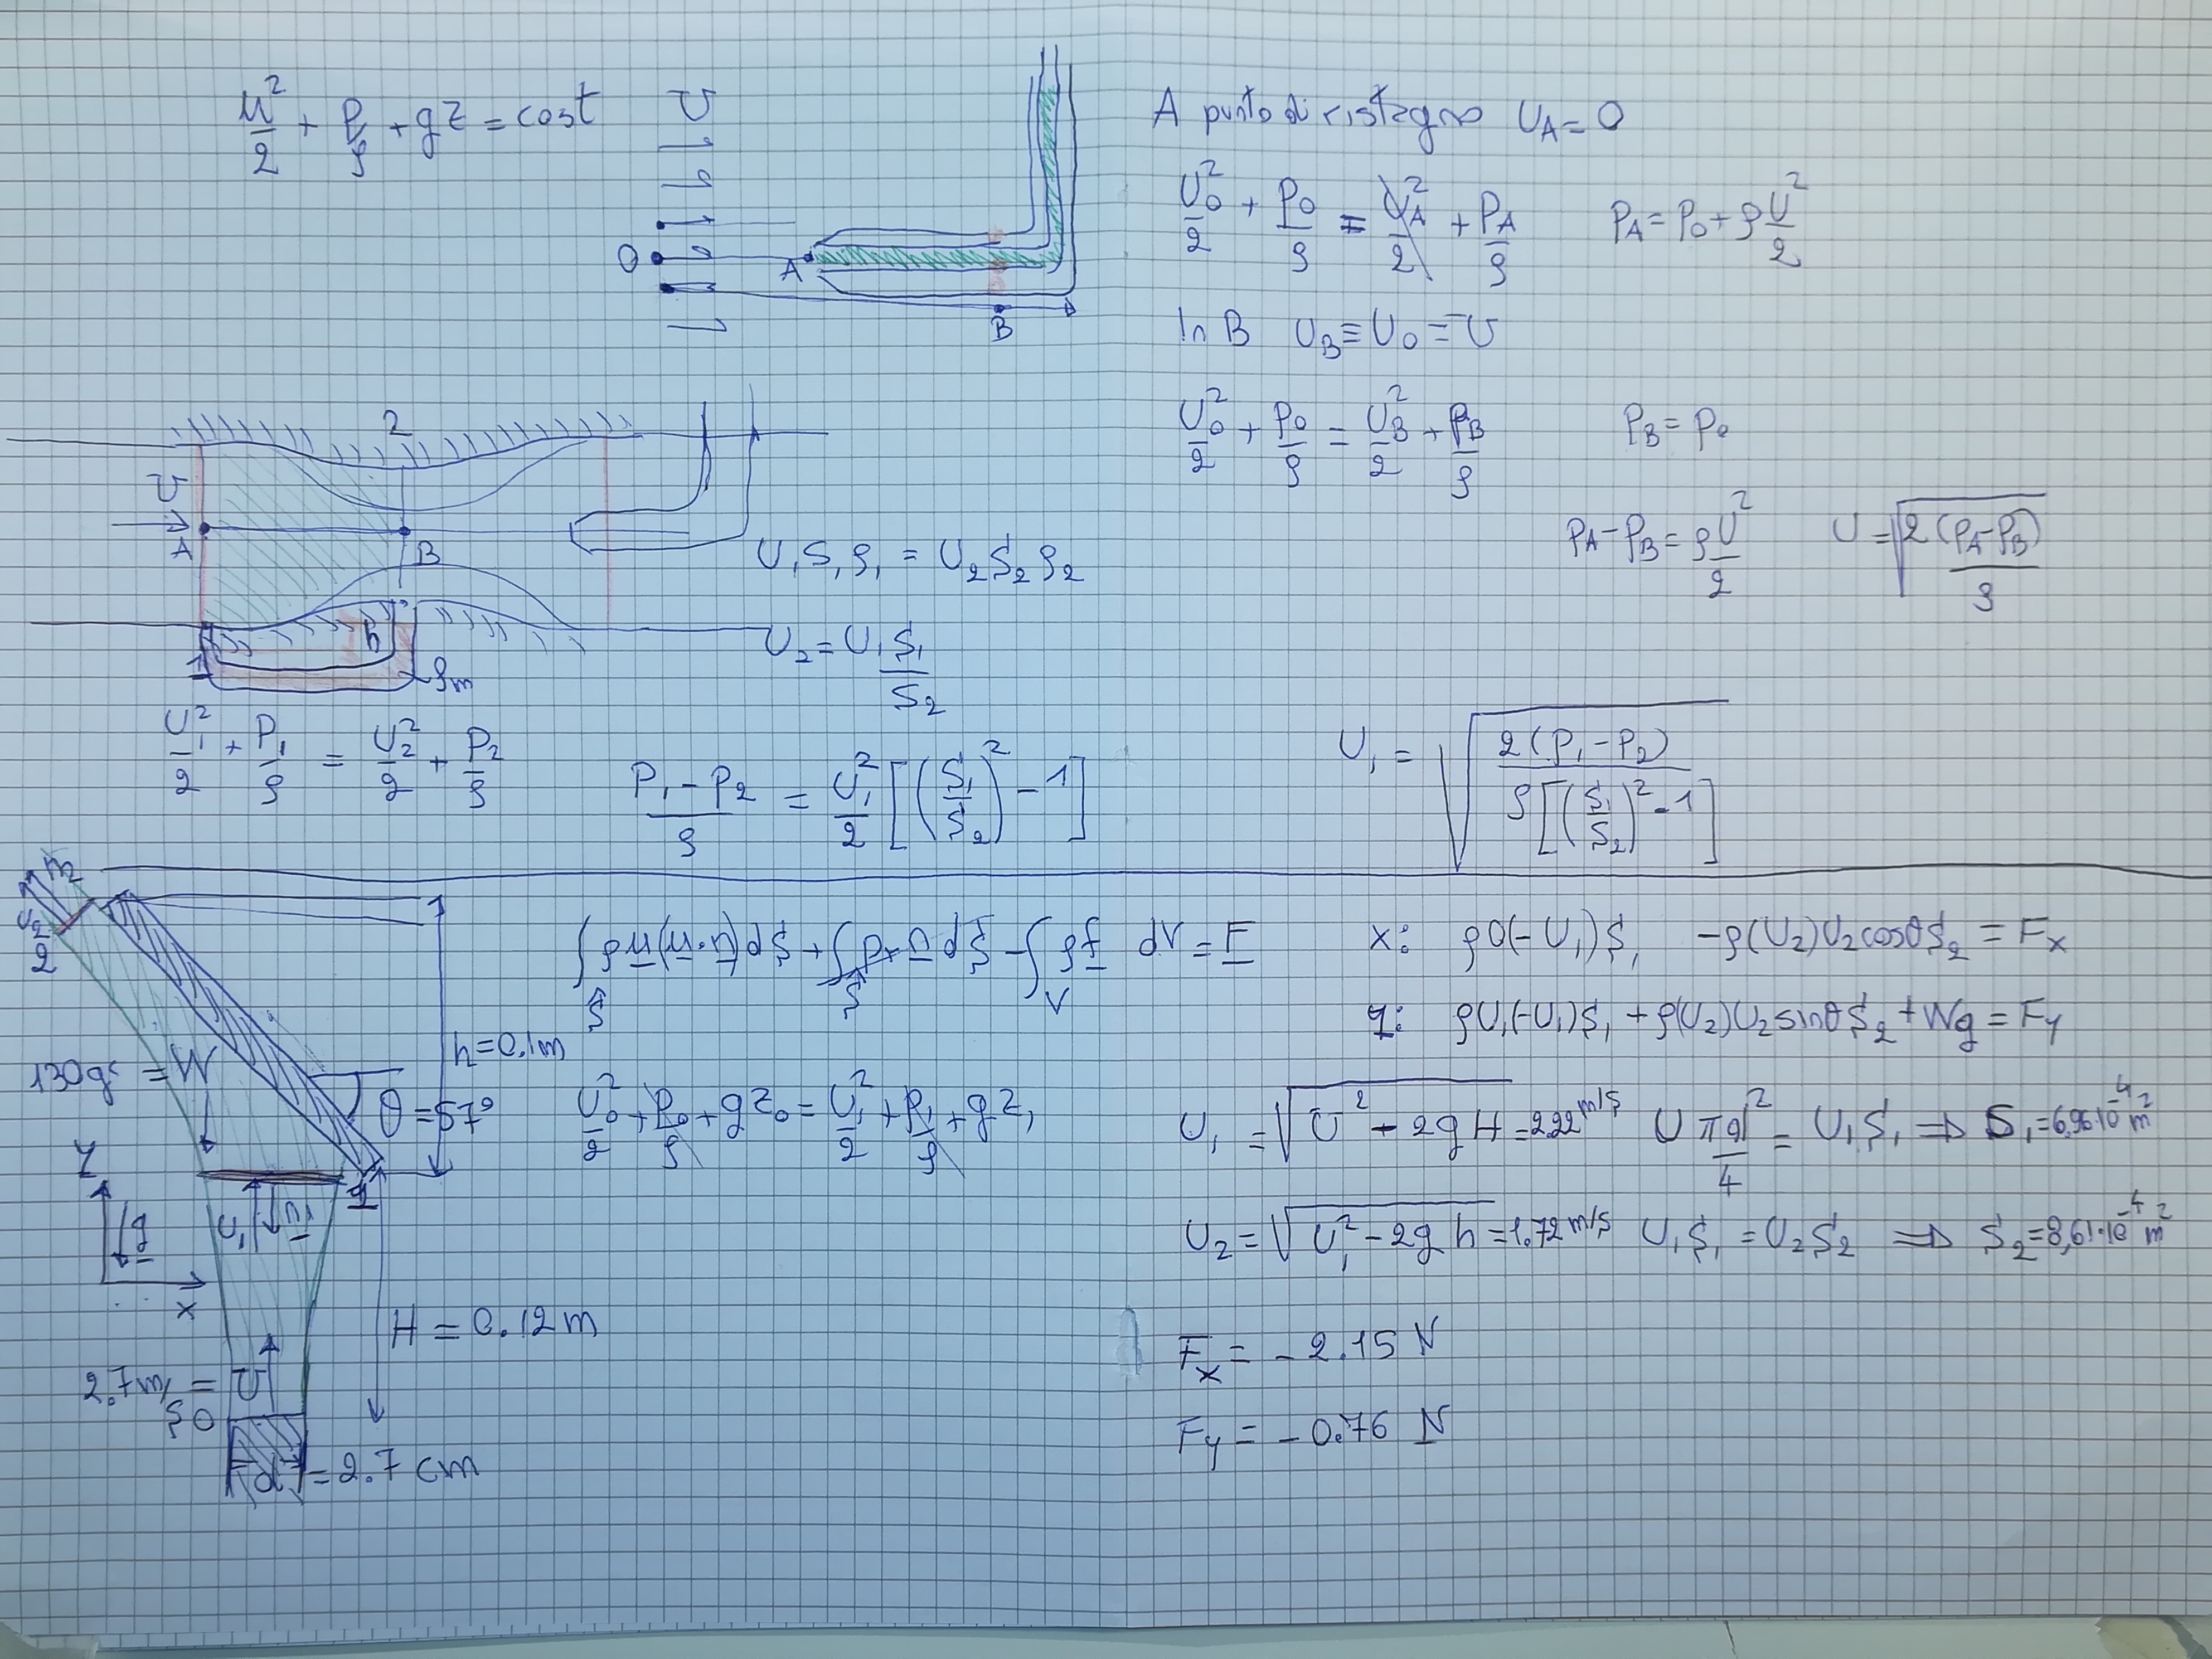 u²/2 + p/ρ + gz = cost
U
O
A
B
A punto di ristagno U_A = 0
U₀²/2 + p₀/ρ = U_A²/2 + p_A/ρ
p_A = p₀ + ρ U²/2
In B U_B ≡ U₀ = U
U₀²/2 + p₀/ρ = U_B²/2 + p_B/ρ
p_B = p₀
p_A - p_B = ρ U²/2
U = √(2(p_A - p_B)/ρ)
2
U
A
B
h
1
ρm
U₁S₁ρ₁ = U₂S₂ρ₂
U₂ = U₁S₁/S₂
U₁²/2 + P₁/ρ = U₂²/2 + P₂/ρ
(P₁ - P₂)/ρ = U₁²/2 [(S₁/S₂)² - 1]
U₁ = √(2(P₁ - P₂)/ρ[(S₁/S₂)² - 1])
n₂
U₂
2
130g = W
θ = 57°
h = 0.1m
Y
g
x
U₁
n₁
1
H = 0.12m
2.7m/s = U
0
d = 2.7 cm
∫_S ρu(u·n)dS + ∫_S p n dS - ∫_V ρf dV = F
U₀²/2 + p₀/ρ + gz₀ = U₁²/2 + p₁/ρ + gz₁
x: ρ0(-U₁)S₁ - ρ(U₂)U₂cosθS₂ = Fx
y: ρU₁(-U₁)S₁ + ρ(U₂)U₂sinθS₂ + Wg = Fy
U₁ = √(U² - 2gH) = 2.22 m/s U πd²/4 = U₁S₁ ⇒ S₁ = 6,96·10⁻⁴ m²
U₂ = √(U₁² - 2gh) = 1.72 m/s U₁S₁ = U₂S₂ ⇒ S₂ = 8,61·10⁻⁴ m²
Fx = -2.15 N
Fy = -0.76 N